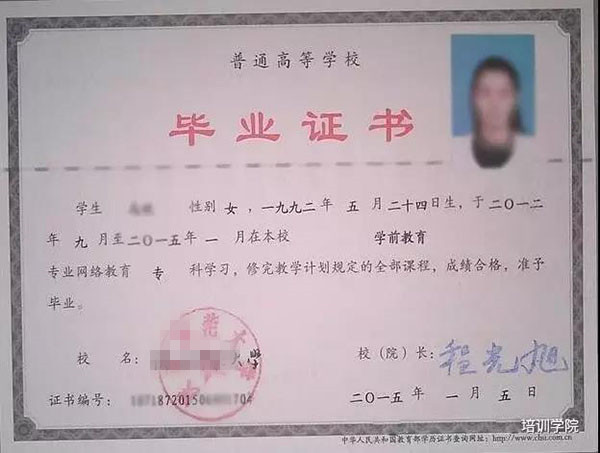 普通高等学校
毕业证书
学生 性别 女，一九九二年 五 月二十四日生，于二〇一二
年 九 月至二〇一五年 一 月在本校 学前教育
专业网络教育 专 科学习，修完教学计划规定的全部课程，成绩合格，准予
毕业。
校 名： 大学
校（院）长：程光旭
证书编号： 704
二〇一五年 一 月 五 日
中华人民共和国教育部学历证书查询网址：http://www.chsi.com.cn
培训学院